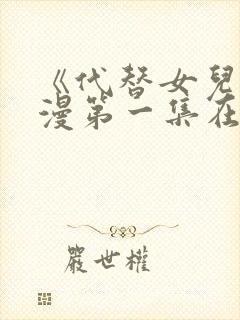 《代替女兒
漫第一集在
嚴世權